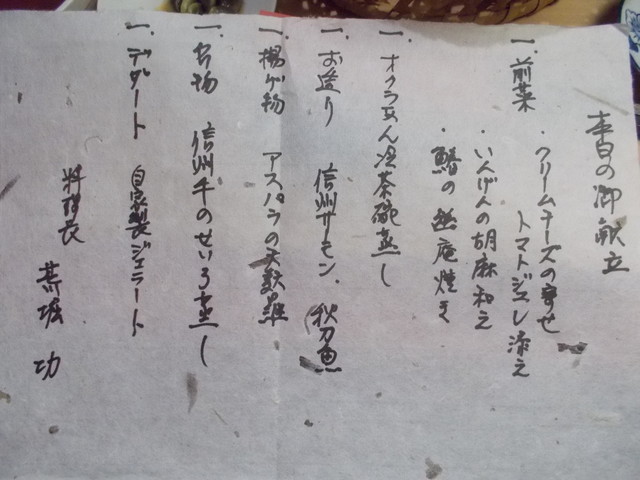 本日の御献立
一、前菜 ・クリームチーズの寄せ
トマトジュレ添え
・いんげんの胡麻和え
・鰆の幽庵焼き
一、オクラあん冷茶碗蒸し
一、お造り 信州サーモン、秋刀魚
一、揚げ物 アスパラの天麩羅
一、名物 信州牛のせいろ蒸し
一、デザート 自家製ジェラート
料理長
功